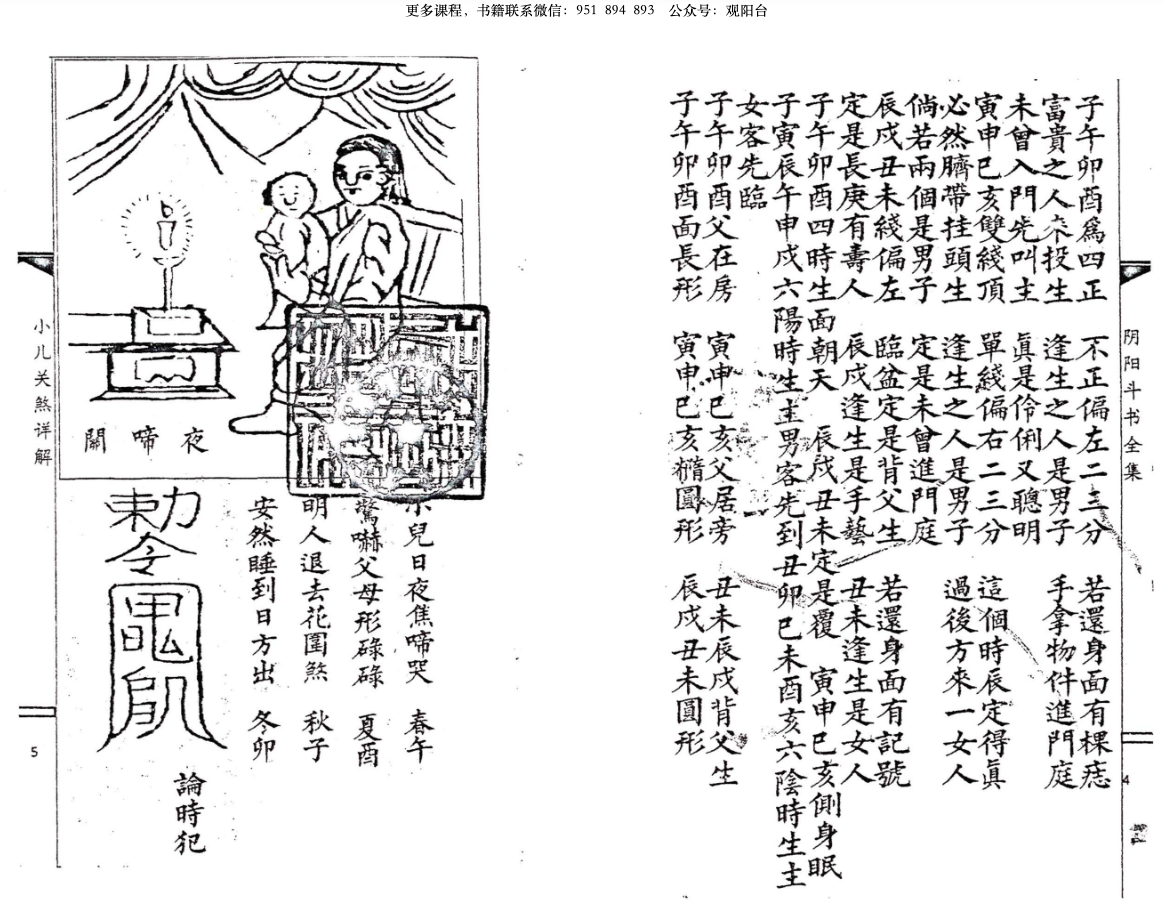 更多课程，书籍联系微信：951 894 893 公众号：观阳台
阴阳斗书全集
4
子午卯酉爲四正 不正偏左二三分 若還身面有棵痣
富貴之人來投生 逢生之人是男子 手拿物件進門庭
未曾入門先叫主 眞是伶俐又聰明
寅申巳亥雙綫頂 單綫偏右二三分 這個時辰定得眞
必然臍帶挂頭生 逢生之人是男子 過後方來一女人
倘若兩個是男子 定是未曾進門庭
辰戌丑未綫偏左 臨盆定是背父生 若還身面有記號
定是長庚有壽人 辰戌逢生是手藝 丑未逢生是女人
子午卯酉四時生面朝天 辰戌丑未定是覆 寅申巳亥側身眠
子寅辰午申戌六陽時生主男客先到丑卯巳未酉亥六陰時生主
女客先臨
子午卯酉父在房 寅申巳亥父居旁 丑未辰戌背父生
子午卯酉面長形 寅申巳亥橢圓形 辰戌丑未圓形
小儿关煞详解
5
夜啼關
小兒日夜焦啼哭 春午
驚嚇父母形碌碌 夏酉
明人退去花園煞 秋子
安然睡到日方出 冬卯
論時犯
勅令